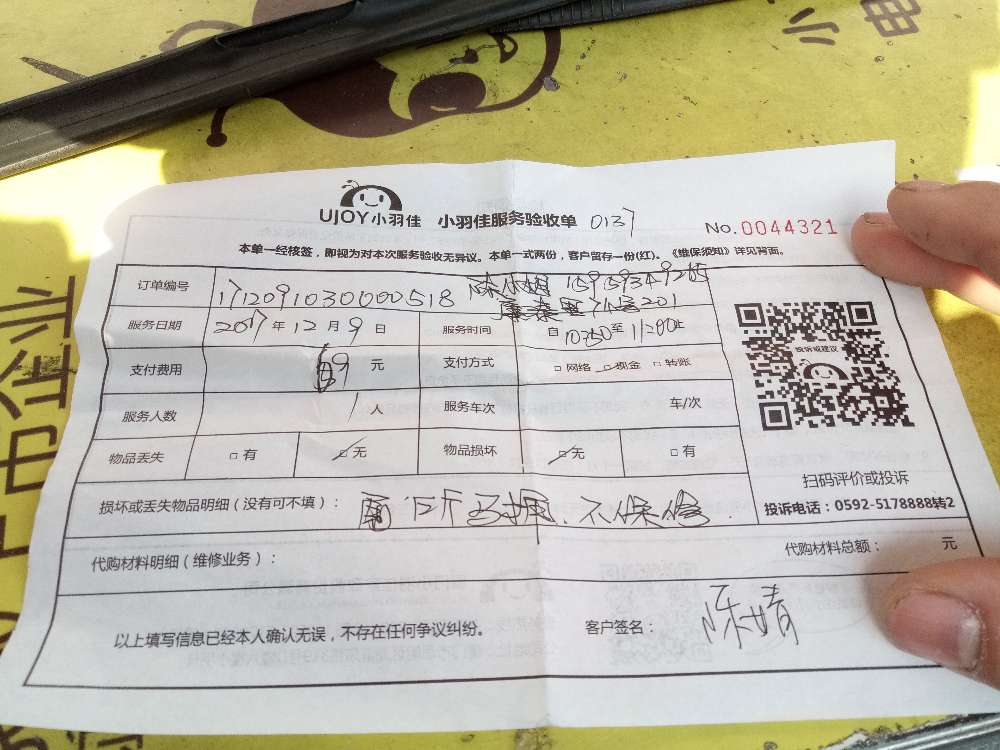 小电
UJOY小羽佳 小羽佳服务验收单 0137
No.0044321
本单一经核签，即视为对本次服务验收无异议。本单一式两份，客户留存一份(红)。《维保须知》详见背面。
订单编号 1712091030000518 陈小姐
7 201
服务日期 2017年12月9日 服务时间 自 至 止
支付费用 69 元 支付方式 □网络 □现金 □转账
服务人数 1人 服务车次 车/次
物品丢失 □有 □无 物品损坏 □无 □有
损坏或丢失物品明细（没有可不填）： 厕所马桶、不保修.
代购材料明细（维修业务）： 代购材料总额： 元
以上填写信息已经本人确认无误，不存在任何争议纠纷。 客户签名： 陈婧
投诉或建议
扫码评价或投诉
投诉电话：0592-5178888转2
市企业